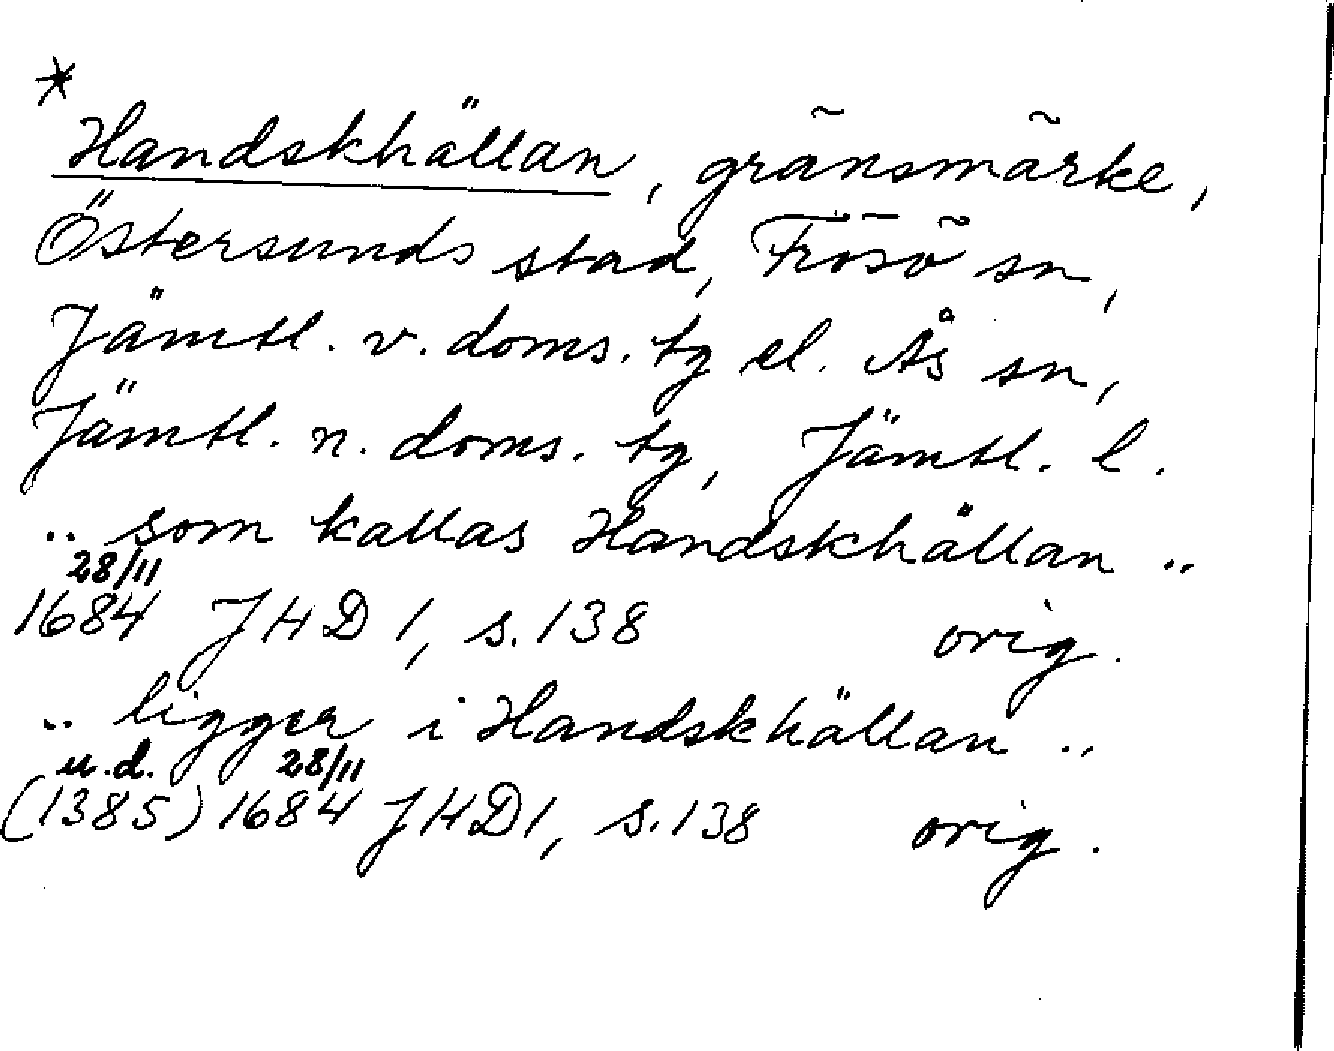 *
Handskhällan, gränsmärke,
Östersunds stad, Frösö sn,
Jämtl. v. doms. tg el. Ås sn,
Jämtl. n. doms. tg, Jämtl. l.
.. som kallas Handskhällan ..
28/11
1684 JHD 1, s. 138 orig.
.. ligger i Handskhällan ..
u.d. 28/11
(1385) 1684 JHD 1, s. 138 orig.